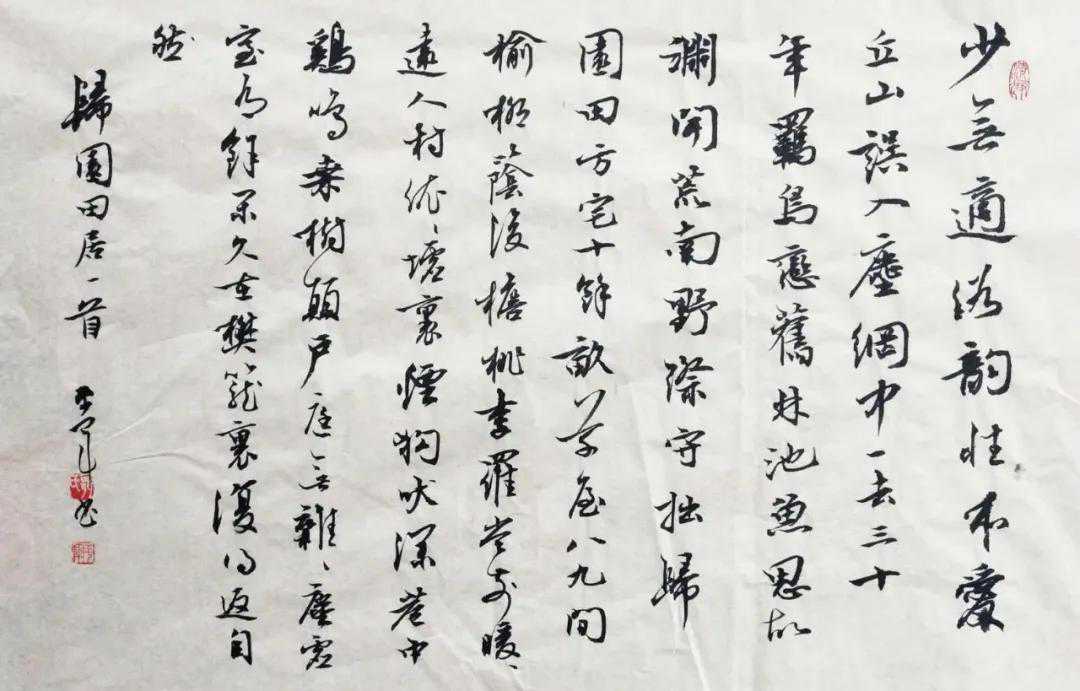 少無適俗韵性本愛
丘山誤入塵網中一去三十
年羈鳥戀舊林池魚思故
淵開荒南野際守拙歸
園田方宅十餘畝草屋八九間
榆柳蔭後檐桃李羅堂前暖、
遠人村依、墟裏煙狗吠深巷中
鷄鳴桑樹顛戶庭無雜、塵虛
室有餘閑久在樊籠裏復得返自
然
歸園田居一首
書